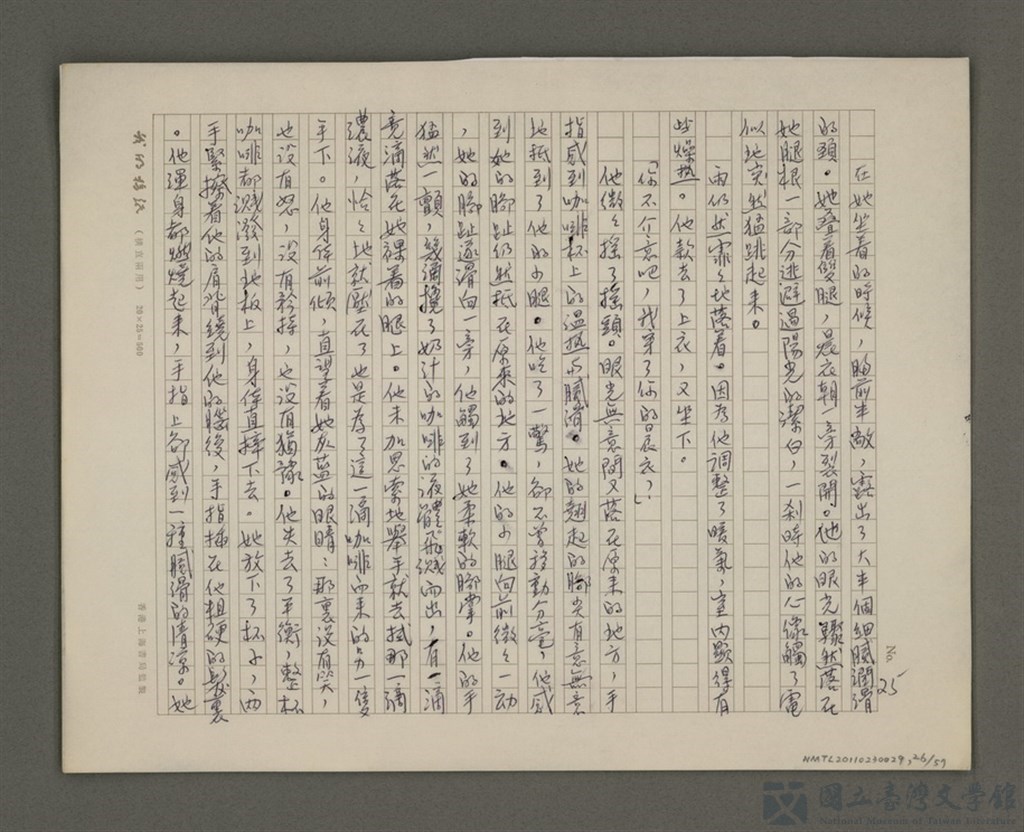 No. 25
在她坐着的時候，胸前半敞，露出了大半個細膩潤滑
的頸。她叠着雙腿，晨衣朝一旁裂開。他的眼光驟然落在
她腿根一部分逃避過陽光的潔白，一刹時他的心像觸了電
似地突然猛跳起来。
雨仍然霏霏地落着。因為他調整了暖氣，室内顯得有
些燥热。他款去了上衣，又坐下。
「你不介意吧，我穿了你的晨衣？」
他微々搖了搖頭。眼光無意間又落在原来的地方，手
指感到咖啡杯上的温热与膩滑。她的翹起的脚尖有意無意
地抵到了他的小腿。他吃了一驚，卻不曾移動分毫，他感
到她的脚趾仍然抵在原来的地方。他的小腿向前微々一动
，她的脚趾遂滑向一旁，他觸到了她柔軟的脚掌。他的手
猛然一顫，幾滴攙了奶汁的咖啡的液體飛濺而出，有一滴
竟滴落在她裸着的腿上。他未加思索地舉手就去拭那一滴
濃液，恰々地就壓在了也是為了這一滴咖啡而来的另一隻
手下。他身体前倾，直望着她灰藍的眼睛：那裏没有笑，
也没有怒，没有矜持，也没有猶豫。他失去了平衡，整杯
咖啡都濺潑到地板上，身体直摔下去。她放下了杯子，兩
手緊擦着他的肩背繞到他的腦後，手指插在他粗硬的髮裏
。他渾身都燃燒起来，手指上卻感到一種膩滑的清凉。她
我的稿紙（橫直兩用） 20×25=500
香港上海書局監製
NMTL20110230029,26/59
國立臺灣文學館
National Museum of Taiwan Literature